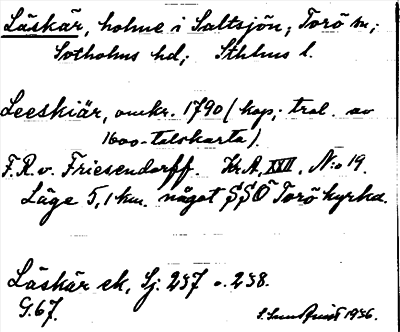 Läskär, holme i Saltsjön; Torö sn;
Sotholms hd; Sthlms l.
Leeskiär, omkr. 1790 (kop; trol. av
1600-talskarta).
F.R. v. Friesendorff. Kr.A, XVII, N:o 19.
Läge 5,1 km. något SSO Torö kyrka.
Läskär ek, Sj. 237 o. 238.
G. 67.
1936.